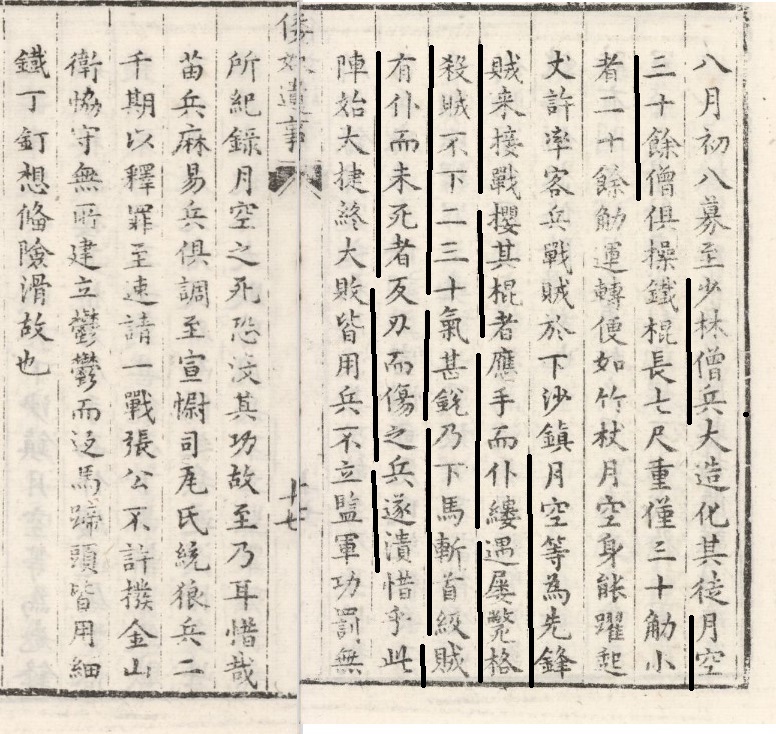 八月初八募至少林僧兵大造化其徒月空
三十餘僧俱操鐵棍長七尺重僅三十觔小
者二十餘觔運轉便如竹杖月空身能躍起
丈許率客兵戰賊於下沙鎮月空等為先鋒
賊来接戰攖其棍者應手而仆縷遇屡斃格
殺賊不下二三十氣甚銳乃下馬斬首級賊
有仆而未死者反刃而傷之兵遂潰惜乎此
陣始大捷終大敗皆用兵不立監軍功罰無
倭奴遺事
十七
所紀錄月空之死恐没其功故至乃耳惜哉
苗兵麻易兵俱調至宣慰司尾氏統狼兵二
千期以釋罪至速請一戰張公不許撥金山
衛恊守無所建立鬱鬱而返馬蹄頭皆用細
鐵丁釘想脩險滑故也